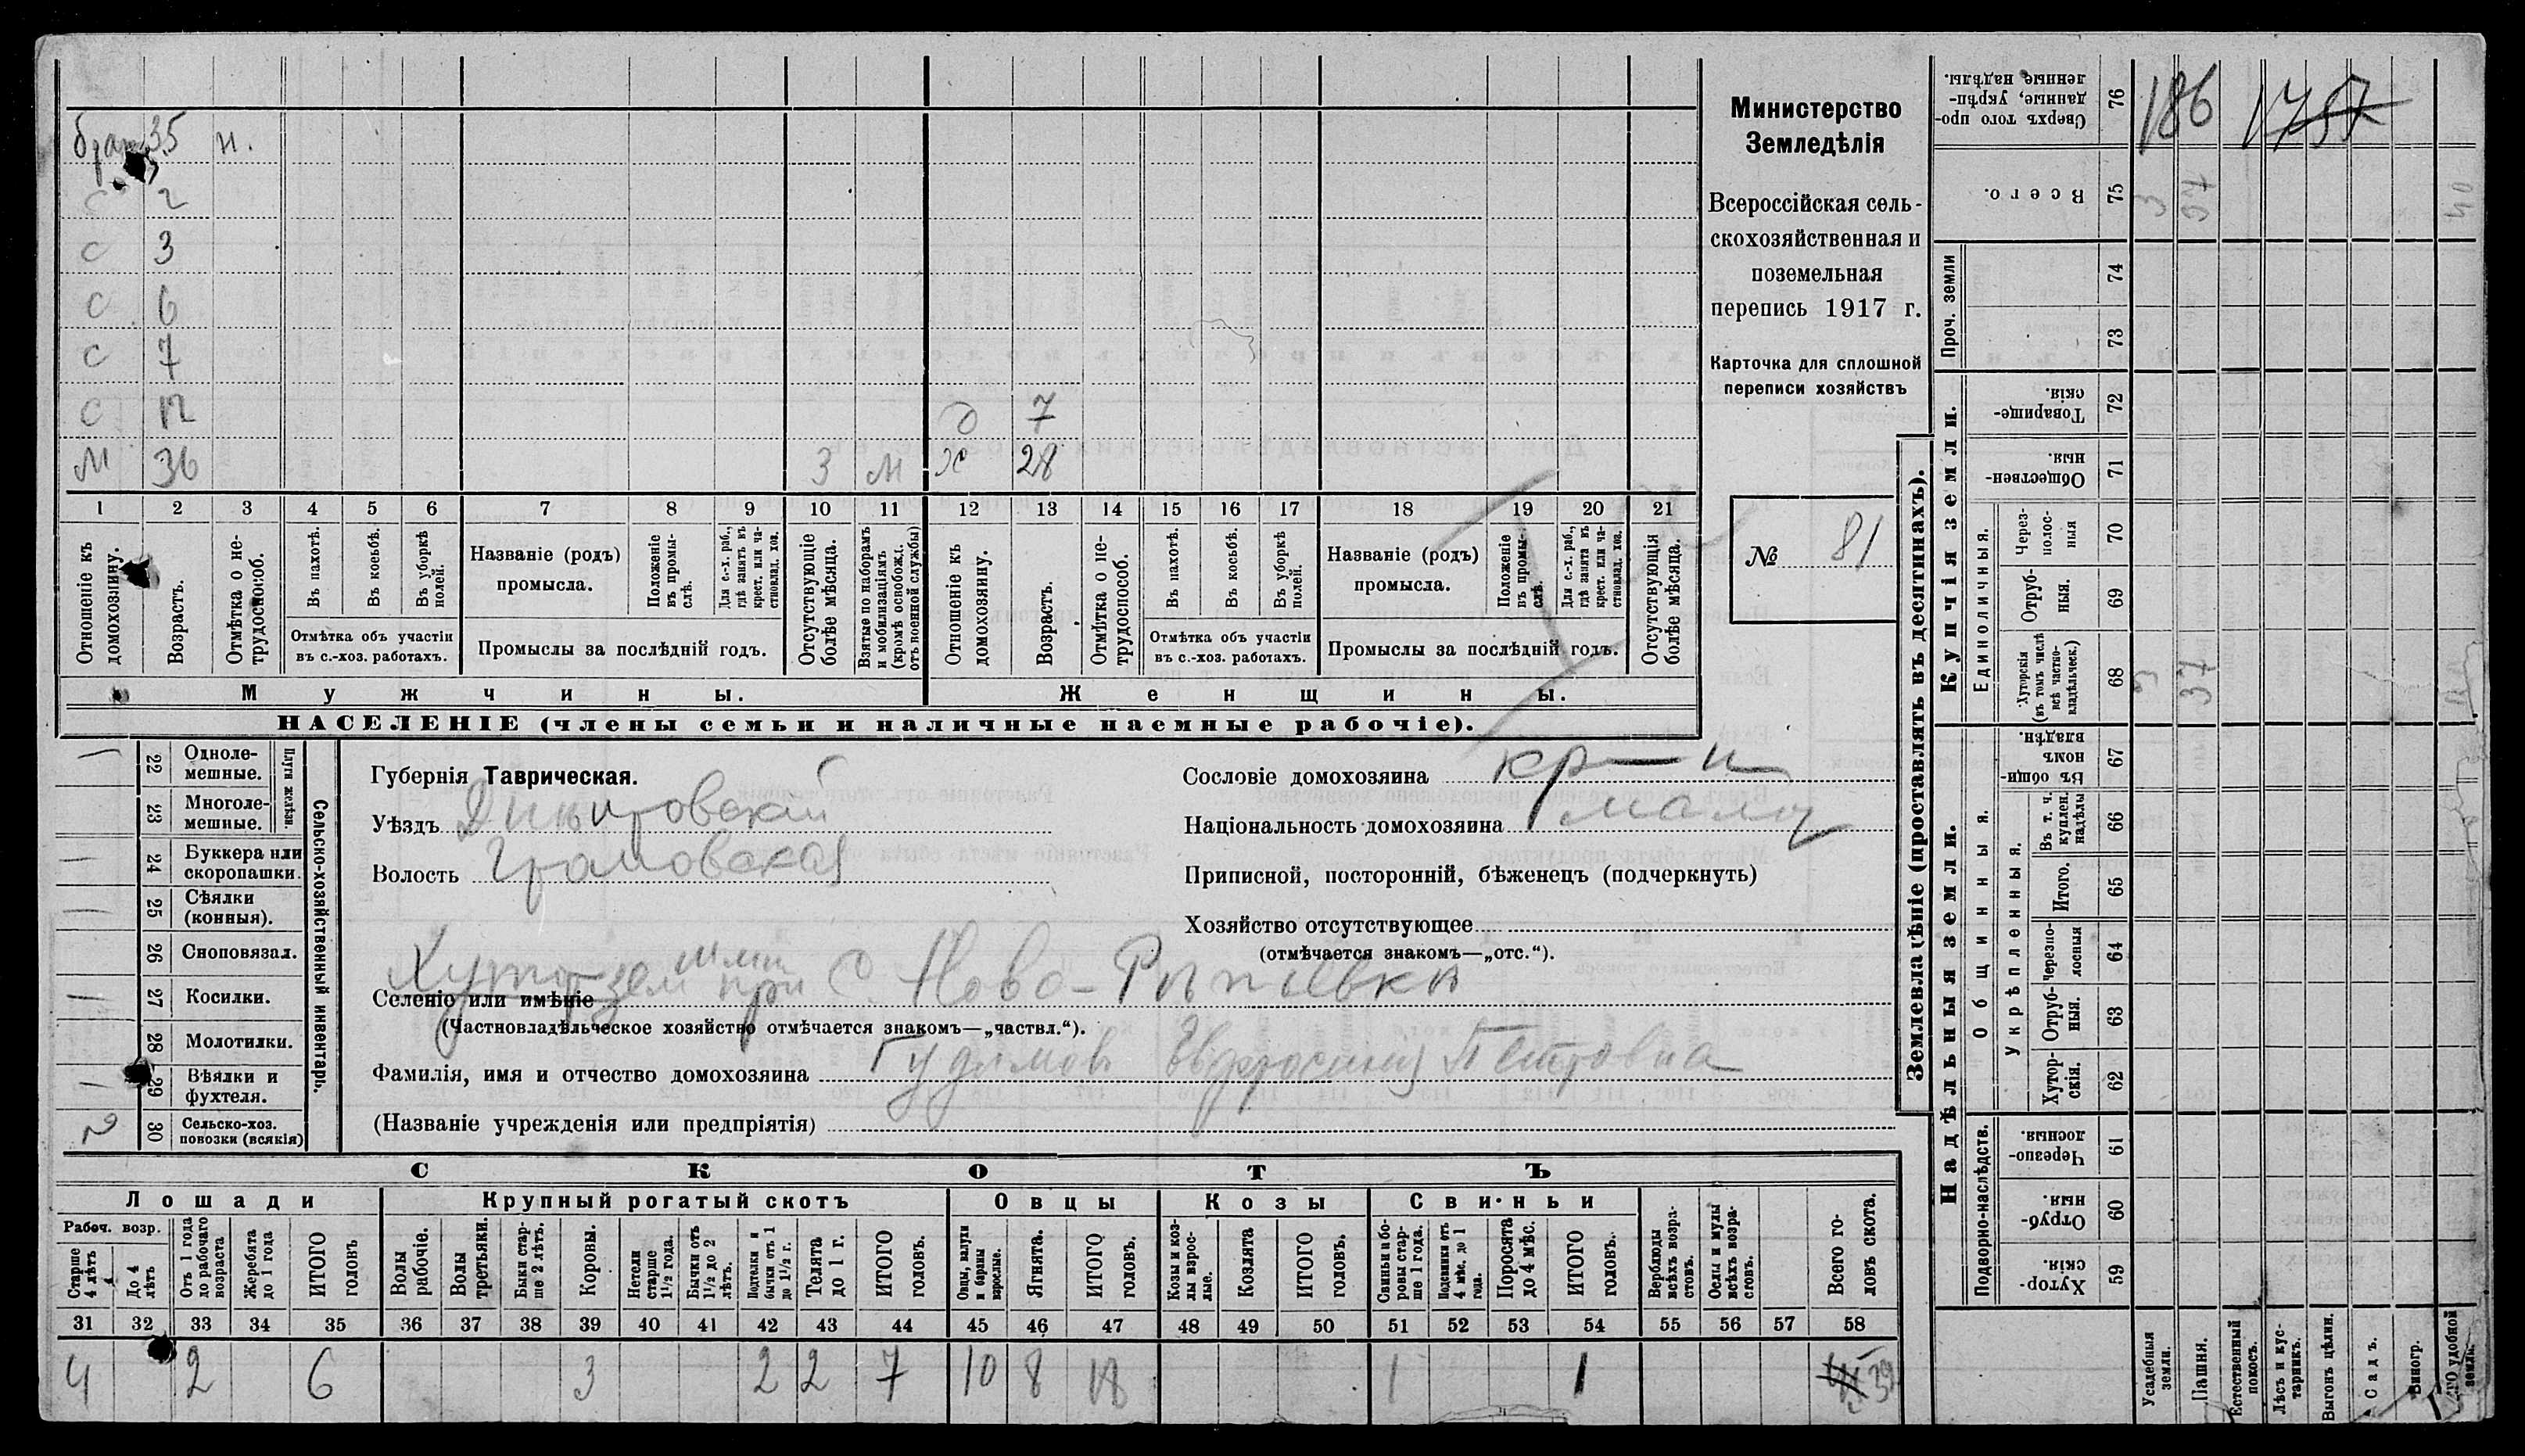 брат 35 н.
с 2
с 3
с 6
с 7
с 12 д 7
м 36 3 м х 28
1 2 3 4 5 6 7 8 9 10 11 12 13 14 15 16 17 18 19 20 21
Отношеніе къ домохозяину.
Возрастъ.
Отмѣтка о не-трудоспособ.
Въ пахотѣ.
Въ косьбѣ.
Въ уборкѣ полей.
Отмѣтка объ участіи въ с.-хоз. работахъ.
Названіе (родъ) промысла.
Положеніе въ промы-слѣ.
Для с.-х. раб., гдѣ занятъ въ крест. или ча-стновлад. хоз.
Промыслы за послѣдній годъ.
Отсутствующіе болѣе мѣсяца.
Взятые по наборамъ и мобилизаціямъ (кромѣ освобожд. отъ военной службы)
Отношеніе къ домохозяину.
Возрастъ.
Отмѣтка о не-трудоспособ.
Въ пахотѣ.
Въ косьбѣ.
Въ уборкѣ полей.
Отмѣтка объ участіи въ с.-хоз. работахъ.
Названіе (родъ) промысла.
Положеніе въ промы-слѣ.
Для с.-х. раб., гдѣ занята въ крест. или ча-стновлад. хоз.
Промыслы за послѣдній годъ.
Отсутствующія болѣе мѣсяца.
Мужчины. Женщины.
НАСЕЛЕНІЕ (члены семьи и наличные наемные рабочіе).
Министерство
Земледѣлія
Всероссійская сель-
скохозяйственная и
поземельная
перепись 1917 г.
Карточка для сплошной
переписи хозяйствъ
№ 81
22 Одноле-мешные.
23 Многоле-мешные.
Плуги желѣзн.
24 Буккера или скоропашки.
25 Сѣялки (конныя).
26 Сноповязал.
27 Косилки.
28 Молотилки.
29 Вѣялки и фухтеля.
30 Сельско-хоз. повозки (всякія) 2
Сельско-хозяйственный инвентарь.
Губернія Таврическая.
Уѣздъ
Волость
Селеніе или имѣніе Хутор зем при с. Ново-
(Частновладѣльческое хозяйство отмѣчается знакомъ—„частвл.“).
Фамилія, имя и отчество домохозяина Гудимов Евфросинія Петровна
(Названіе учрежденія или предпріятія)
Сословіе домохозяина кр-н
Національность домохозяина малор
Приписной, посторонній, бѣженецъ (подчеркнуть)
Хозяйство отсутствующее
(отмѣчается знакомъ—„отс.“).
СКОТЪ
Лошади Крупный рогатый скотъ Овцы Козы Свиньи
Рабоч. возр.
Старше 4 лѣтъ
До 4 лѣтъ
Отъ 1 года до рабочаго возраста
Жеребята до 1 года
ИТОГО головъ
Волы рабочіе.
Волы третьяки.
Быки стар-ше 2 лѣтъ.
Коровы.
Нетели старше 1½ года.
Бычки отъ 1½ до 2 лѣтъ.
Подтелки и бычки отъ 1 до 1½ г.
Телята до 1 г.
ИТОГО головъ.
Овцы, валухи и бараны взрослые.
Ягнята.
ИТОГО головъ.
Козы и коз-лы взрос-лые.
Козлята
ИТОГО головъ.
Свиньи и бо-ровы стар-ше 1 года.
Подсвинки отъ 4 мѣс. до 1 года.
Поросята до 4 мѣс.
ИТОГО головъ.
Верблюды всѣхъ возра-стовъ.
Ослы и мулы всѣхъ возра-стовъ.
Всего го-ловъ скота.
31 32 33 34 35 36 37 38 39 40 41 42 43 44 45 46 47 48 49 50 51 52 53 54 55 56 57 58
4 2 6 3 2 2 7 10 8 18 1 1 32
Землевладѣніе (проставлять въ десятинахъ).
Надѣльныя земли. Купчія земли. Проч. земли
Подворно-наслѣдств.
Общинныя.
Укрѣпленныя.
Единоличныя.
76 Сверхъ того про-данные, укрѣп-ленные надѣлы. 186 1757
75 Всего. 3 37 40
74
73
72 Товарище-скія.
71 Обществен-ныя.
70 Через-полос-ныя
69 Отруб-ныя.
68 Хуторскія (въ томъ числѣ всѣ частно-владѣльческ.) 3 37 40
67 Въ общи-номъ владѣн.
66 Въ т. ч. куплен. надѣлы
65 Итого.
64 Черезпо-лосныя
63 Отруб-ныя.
62 Хутор-скія.
61 Черезпо-лосныя.
60 Отруб-ныя.
59 Хутор-скія.
Усадебныя земли.
Пашня.
Естественный покосъ.
Лѣсъ и кус-тарникъ.
Выгонъ цѣлин.
Садъ.
Виногр.
удобной земли.